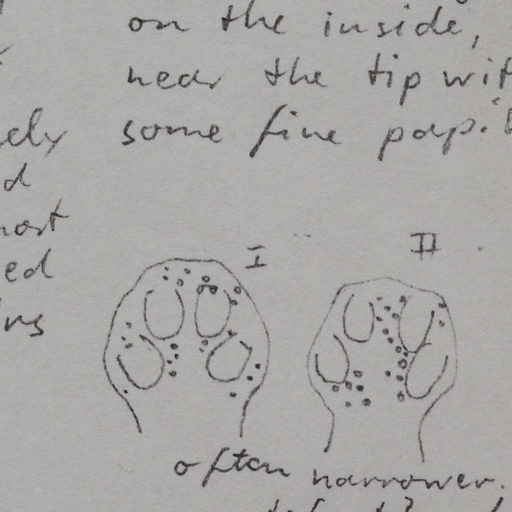 on the inside,
near the tip wit
some fine pap
ely
d
most
ed
irs
I
II
often narrower.